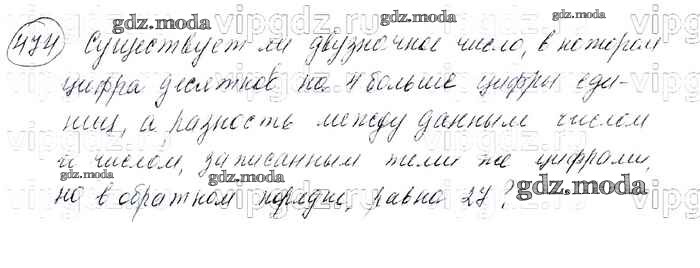 474 Существует ли двузначное число, в котором
цифра десятков на 4 больше цифры еди-
ниц, а разность между данным числом
и числом, записанным теми же цифрами,
но в обратном порядке, равна 27?
gdz.moda
gdz.moda
gdz.moda
gdz.moda
gdz.moda
gdz.moda
gdz.moda
gdz.moda